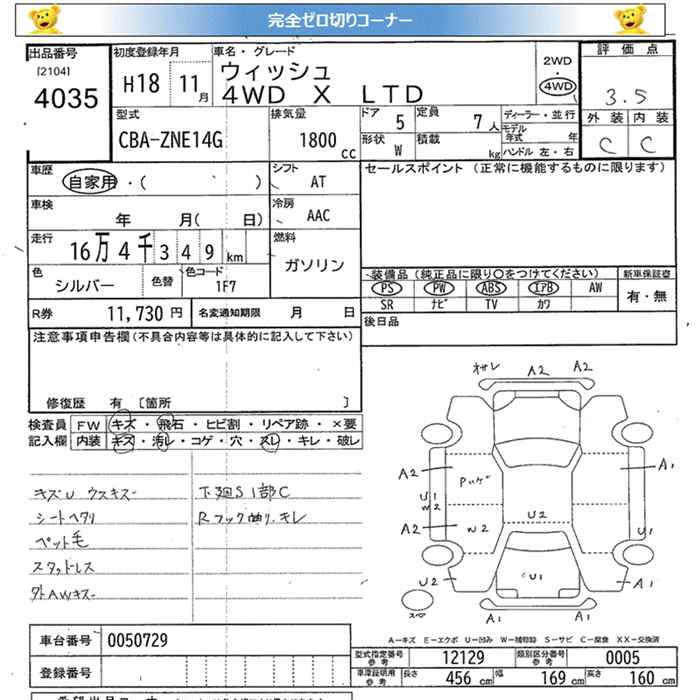 完全ゼロ切りコーナー
出品番号
[2104]
4035
初度登録年月
H18 11月
車名・グレード
ウィッシュ
4WD X LTD
2WD
4WD
評価点
3.5
外装 内装
C C
型式
CBA-ZNE14G
排気量
1800 cc
ドア 5
定員 7人
形状 W
積載 kg
ディーラー・並行
モデル年式 年
ハンドル 左・右
車歴
自家用・( )
シフト
AT
セールスポイント (正常に機能するものに限ります)
車検
年 月( 日)
冷房
AAC
走行
16万4千349km
燃料
ガソリン
色
シルバー
色替
色コード
1F7
装備品 (純正品に限り○をつけてください)
新車保証書
PS PW ABS エアB AW
有・無
SR ナビ TV カワ
R券 11,730円
名変通知期限 月 日
後日品
注意事項申告欄(不具合内容等は具体的に記入して下さい)
修復歴 有 [箇所 ]
検査員記入欄
FW キズ・飛石・ヒビ割・リペア跡・×要
内装 キズ・汚レ・コゲ・穴・スレ・キレ・破レ
キズU ウスキズ
シートヘタリ
ペット毛
スタッドレス
外AWキズ
下廻S1部C
Rフック曲り.キレ
オサレ A2 A2
A2
U1
W2
A2
U2
A1
U1
A1
W2
U2
U1
A1 A1
A-キズ E-エクボ U-凹み W-補修跡 S-サビ C-腐食 XX-交換済
車台番号 0050729
登録番号
型式指定番号 参考 12129
類別区分番号 参考 0005
車庫証明用 参考 長さ 456 cm 幅 169 cm 高さ 160 cm